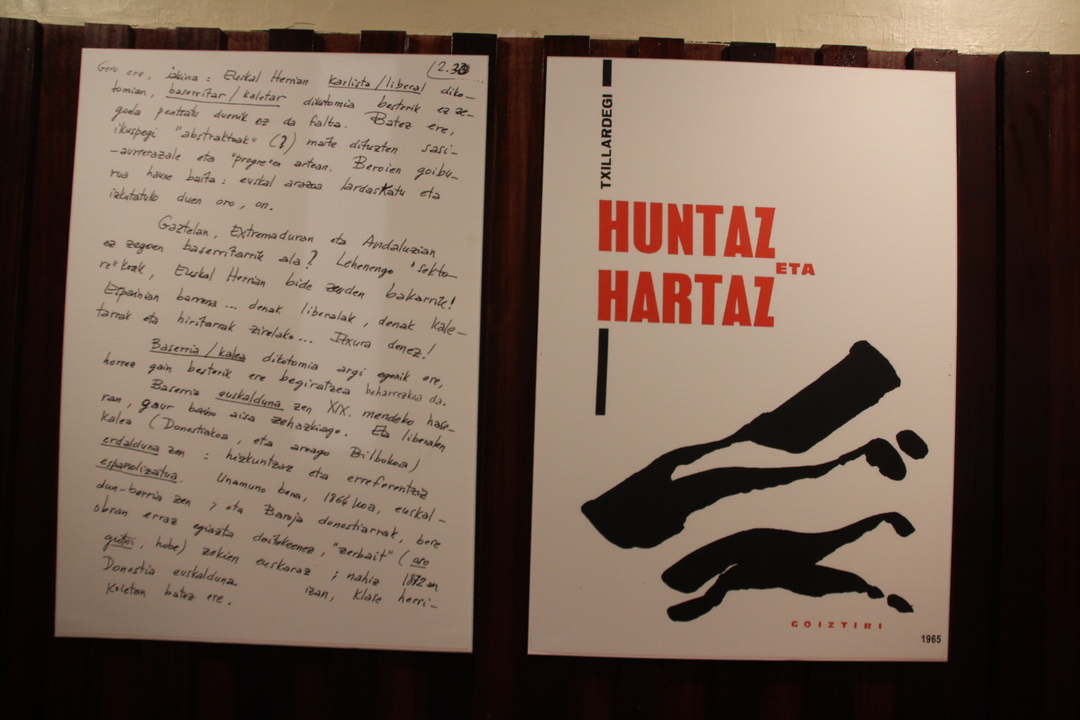 (2.30
Gero ere, jakina: Euskal Herrian karlista/liberal diko-
tomian, baserritar/kaletar dikotomia besterik ez ze-
goela pentsatu duenik ez da falta. Batez ere,
ikuspegi "abstraktoak" (?) maite dituzten sasi-
-aurrerazale eta "progre"en artean. Beroien goibu-
rua hauxe baita: euskal arazoa kardaskatu eta
izkutatuko duen oro, on.
Gaztelan, Extremaduran eta Andaluzian
ez zegoen baserritarrik ala? Lehenengo "sekto-
re"koak, Euskal Herrian bide zeuden bakarrik!
Espainian barrena... denak liberalak, denak kale-
tarrak eta hiritarrak zirelako... Itxura denez!
Baserria/kalea dikotomia argi egonik ere,
horrez gain besterik ere begiratzea beharrezkoa da.
Baserria euskalduna zen XIX. mendeko hase-
ran, gaur baino aisa zehazkiago. Eta liberalen
kalea (Donostiakoa, eta areago Bilbokoa)
erdalduna zen: hizkuntzaz eta erreferentziaz
espainolizatua. Unamuno bera, 1864koa, euskal-
dun-berria zen; eta Baroja donostiarrak, bere
obran erraz egiazta daitekeenez, "zerbait" (oso
gutxi, hobe) zekien euskaraz; nahiz 1872an
Donostia euskalduna izan, klase herri-
koietan batez ere.
TXILLARDEGI
HUNTAZ
ETA
HARTAZ
GOIZTIRI
1965